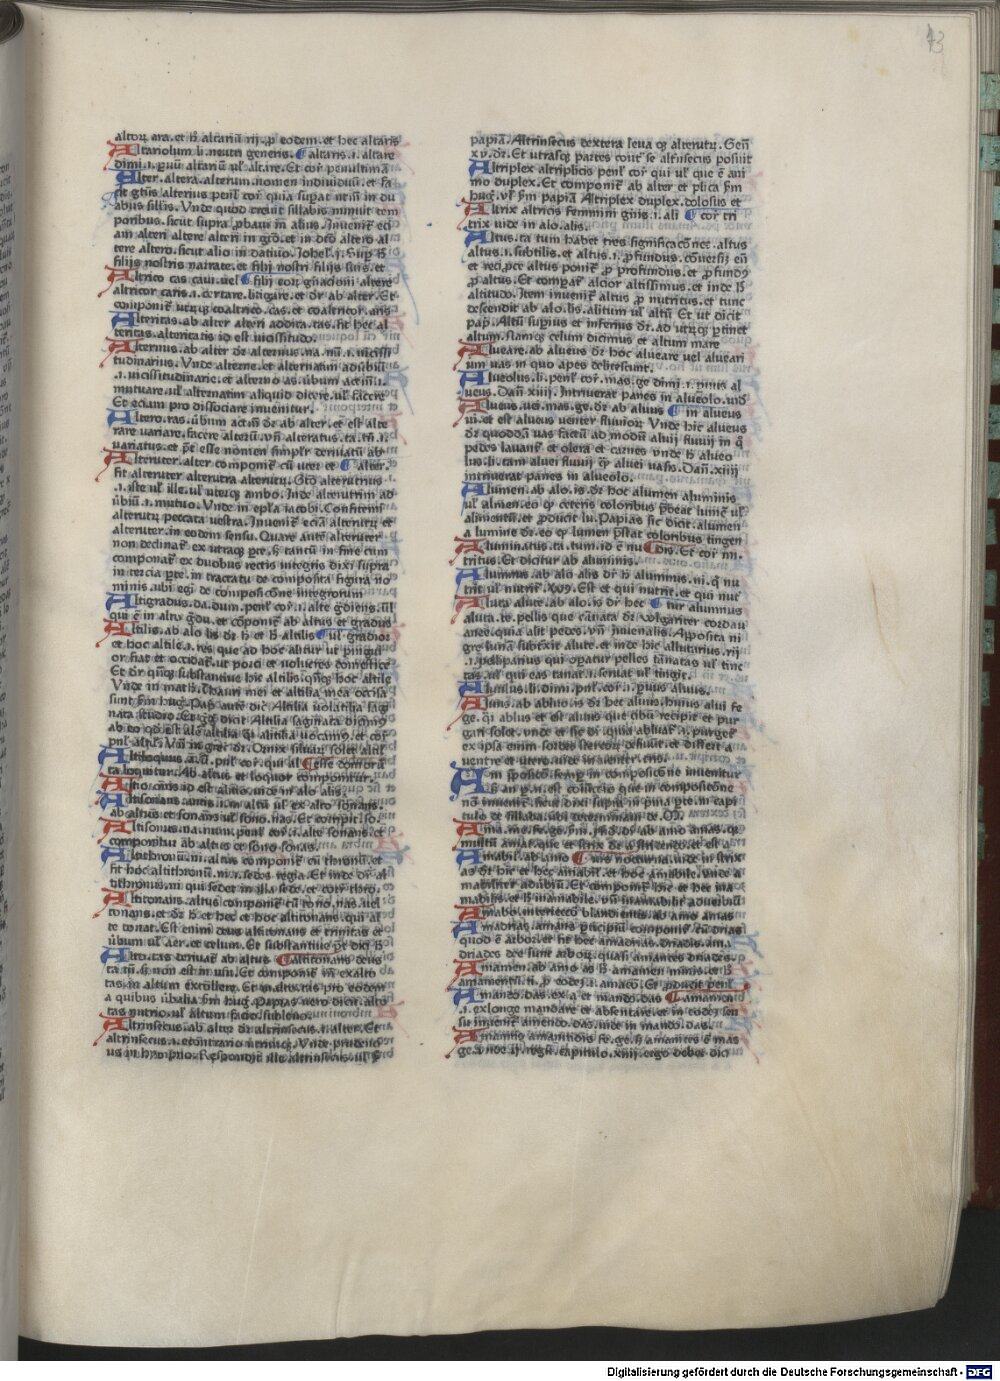 73
altoꝝ ara. et h̄ altariū rij. ꝓ eodem. et hec altaris
Altariolum li. neutri generis. altaris .i. altare
dimi .i. ꝑuū altariū ul̄ altare. Et cor̄ penultimā
Alter. altera. alterum. nomen indiuiduū. et fa
cit gtiūs alterius penl̄ cor̄ quia suꝑat nt̄m in du
abus sillis. Vnde quod creuit sillabis minuit tem
poribus. sicut supra ꝓbaui in alius. Inueniēt eci
am alteri altere alteri in gtō. et in dtō altero al
tere altero. sicut alio in datiuo. Johel̄ .j. Suꝑ h̄
filijs nostris narrate. et filij nostri filijs suis. et
Altrico cas caui. uel filij eoꝝ gnacioni altere
altricor caris .i. certare. litigare. et dr̄ ab alter. Et
componit̄ utrūqꝫ coaltrico. cas. et coaltricor. aris
Alteritas. ab alter alteri addita. tas. fit hec al
teritas. alteritatis id est uicissitudo.
Alternus. ab alter dr̄ alternus. na. nū .i. uicissi
tudinarius. Vnde alterne. et alternatim aduībiū
.i. uicissitudinarie. et alterno as. ūbum actiuū .i.
mutuare. ul̄ alternatim aliquid dicere. ul̄ facere
Et eciam pro dissociare inuenitur.
Altero. ras. ūbum actiuū dr̄ ab alter. et est alte
rare uariare. facere alterū. vn̄ alteratus. ta. tū .i.
uariatus. et pt̄ esse nomen simplr̄ deriuatū ab
Alteruter. alter componit̄ cū uter et alter.
fit alteruter alterutra alterutꝝ. Gtō alterutrius
.i. iste ul̄ ille. ul̄ uterqꝫ ambo. Inde alterutrim ad
ūbiū .i. mutuo. Vnde in epl̄a iacobi. Confitemi
alterutꝝ peccata uestra. Inuenit̄ eciā alterutꝝ et
alteruter. in eodem sensu. Quare autē alteruter
non declinat̄ ex utraqꝫ ꝑte. h̄ tantū in fine cum
componat̄ ex duobus rectis integris dixi supra
in tercia ꝑte. in tractatu de composita figura no
minis. ubi egi de composicōne integrorum
Altigradus. da. dum. penl̄ cor̄ .i. alte gdiens. ul̄
qui ē in altū gdu. et cōponit̄ ab altus et gradus
Altilis. ab alo lis dr̄ h̄ et h̄ altilis ul̄ gradior
et hoc altile .i. res que ad hoc alitur ut pinguí
or fiat et occidat̄. ut porci et uolucres domestice
Et dr̄ qn̄qꝫ substantiue hic altilis. qn̄qꝫ hoc altile
Vnde in math̄. Thauri mei et altilia mea occisa
sunt. fm̄ huḡ. Pap̄ autē dic̄ Altilia uolatilia sagi
nata studio. Et grḡ dicit Altilia saginata dicim9
ab eo qd̄ est ale altilia. qi altilia uocam9. et cor̄
pnl̄ altil̄. Vnū in greci dr̄. Ornix siluaꝝ solet altil̄
Altiloquus. a. ū. pnl̄ cor̄. qui al esse comora
ta loquitur. Ab altus et loquor componitur.
Altio. onis id est alitio. uide in alo alis.
Altisonans antis .i. in altū ul̄ ex alto sonans.
ab altus et sonans ul̄ sono. nas. Et compit̄. so.
Altisonus. na. num. penl̄ cor̄ .i. alte sonans. et
componitur ab altus et sono sonas.
Altithronū. ni. altus componit̄ cū thronū. et
fit hoc altithronū. ni .i. sedes regia. Et inde dr̄ al
tithronus. ni qui sedet in illa sede. et cor̄ thro.
Altitonans. altus componit̄ cū tono. nas. uel
tonans. et dr̄ h̄ et hec et hoc altitonans. qui al
te tonat. Est enim deus altitonans et trinitas et
ūbum ul̄ aer. et celum. Et substantiue pt̄ dici h̄
Alto. tas deriuat̄ ab altus altitonans deus
ta tū. h̄ non est in usu. Et componit̄ in exalto
tas. in altum extollere. Et in alto. tas pro eodem
a quibus ūbalia. fm̄ huḡ. Papias uero dicit. alto
tas nutrio. ul̄ altum facio. sublimo.
Altrinsecus. ab alter dr̄ altrinsecus .i. alter. Et
altrinsecus .i. econtrario utrūqꝫ. Vnde prudenti
us in hymnario. Respondit̄ ille altrinsecus. ul̄ ẜ
papiā. Altrinsecus dextera leua qꝫ alterutꝝ. Gen̄
xv. dr̄. Et utrasqꝫ partes coūt̄ se altrīsecus posuit
Altriplex altriplicis penl̄ cor̄ qui ul̄ que ē ani
mo duplex. Et componit̄ ab alter et plica fm̄
huḡ. ul̄ fm̄ papiā Altriplex duplex. dolosus et
Altrix altricis feminini gn̄is .i. ali cor̄ tri
trix uide in alo. alis.
Altus. ta tum habet tres significacōnes. altus
altus .i. subtilis. et altus .i. ꝓfundus. conuersij en̄
et reciꝓce altus ponit̄ ꝓ profundus. et ꝓfund9
ꝓ altus. Et comparat̄ altior altissimus. et inde h̄
altitudo. Item inuenit̄ altus ꝓ nutritus. et tunc
descendit ab alo. lis. alitum ul̄ altū Et ut dicit
pap̄. Altū suꝑius et inferius dr̄. ad utrūqꝫ ꝑtinet
altum. Nam qꝫ celum dicimus et altum mare
Alueare. ab alueus dr̄ hoc alueare uel alueari
um uas in quo apes debitescunt.
Alueolus. li. penl̄ cor̄. mas. ge dimi .i. ꝑuus al
ueus. Dan̄ xiiij. Intriuerat panes in alueolo. und̄
Alueus. uei. mas. ge. dr̄ ab aluus in alueus
ui. et est alueus uenter fluuioꝝ Vnde hic alueus
dr̄ quoddā uas factū ad modū aluij fluuij in q̄
pedes lauant̄ et olera et carnes vnde h̄ alueo
lus. li. tam aluei fluuij qꝫ aluei uasis. Dan̄. xiiij
intriuerat panes in alueolo.
Alumen. ab alo. is dr̄ hoc alumen aluminis
ul̄ almen. eo qꝫ ceteris coloribus ꝓbeat lumē. ul̄
alimentū. et ꝓducit lu. Papias sic dicit. alumen
a lumine dr̄. eo qꝫ lumen pr̄stat coloribus tingen
Aluminatus. ta. tum. id ē nu dis. Et cor̄ mi.
tritus. Et dicitur ab aluminis.
Alumnus. ab alo alis dr̄ h̄ alumnus. ni. q̄ nu
trit̄ ul̄ nutrit̄. Et qui nutrit. et qui nut̄
Aluta alute. ab alo. is dr̄ hec tur alumnus
aluta. te. pellis que tānata dr̄ Vulgariter cordau
anee. quia alit pedes. vn̄ Juuenalis. Apposita ni
gre lunā subtexit alute. et inde hic allutarius. rij
.i. pelliparius qui oꝑatur pelles tanatas ul̄ tinc
tas. ul̄ qui eas tanat .i. seruat ul̄ tingit.
Aluulus. li. dimi. pnl̄ cor̄ .i. ꝑuus aluus.
Aluus. ab abluo. is dr̄ hec aluus. huius alui fe
ge. qi ablus et est aluus que cibū recipit et pur
gari solet. vnde et sic di. quia abluat̄ .i. purget̄
ex ipsa enim sordes stercoꝝ defluūt. et differt a
uentre et utero. uide in uenter. tris.
Am sposicō. semꝑ in composicōne inuenitur
h̄ an ꝓ. n. est coniūctio que in composicōne
nō inuenit̄. sicut dixi supra in pma pte. in capi
tulo de sillaba. ubi determinaui de. M.
Ama. me. fe. ge. fm̄ ysid̄. dr̄ ab amo amas. qꝫ
multū amat. que et strix dr̄ a stridendo. et est a
Amabil̄. ab amo uis nocturna. uide in strix
as dr̄ hic et hec amabil̄. et hoc amabile. vnde a
mabiliter aduībiū. Et componit̄ hic et hec ina
mabilis. et h̄ inamabile. vn̄ inamabilit̄ aduerbiū
Amabo. interiectō blandientis. ab amo amas
Amadrias. amans pticipiū componit̄ cū drias
quod ē arbor. et fit hec amadrias. driadis. ama
driades dee sunt arboꝝ. quasi amantes driades. ꝓ
Amamen. ab amo as h̄ amamen minis. et h̄
amamentū. ti. ꝓ eodeȝ .i. amacō. Et ꝓducit penl̄
Amando. das. ex a et mando. das amamentū
.i. exlonge mandare et absentare. et in eodeȝ sen
su inuenit̄ amendo. das. uide in mando. das.
Amantis amantidis fe. ge. h̄ amantes ē mas
ge. vnde ij. regū. capitulo. xiiij. ergo debet dici
Digitalisierung gefördert durch die Deutsche Forschungsgemeinschaft - DFG